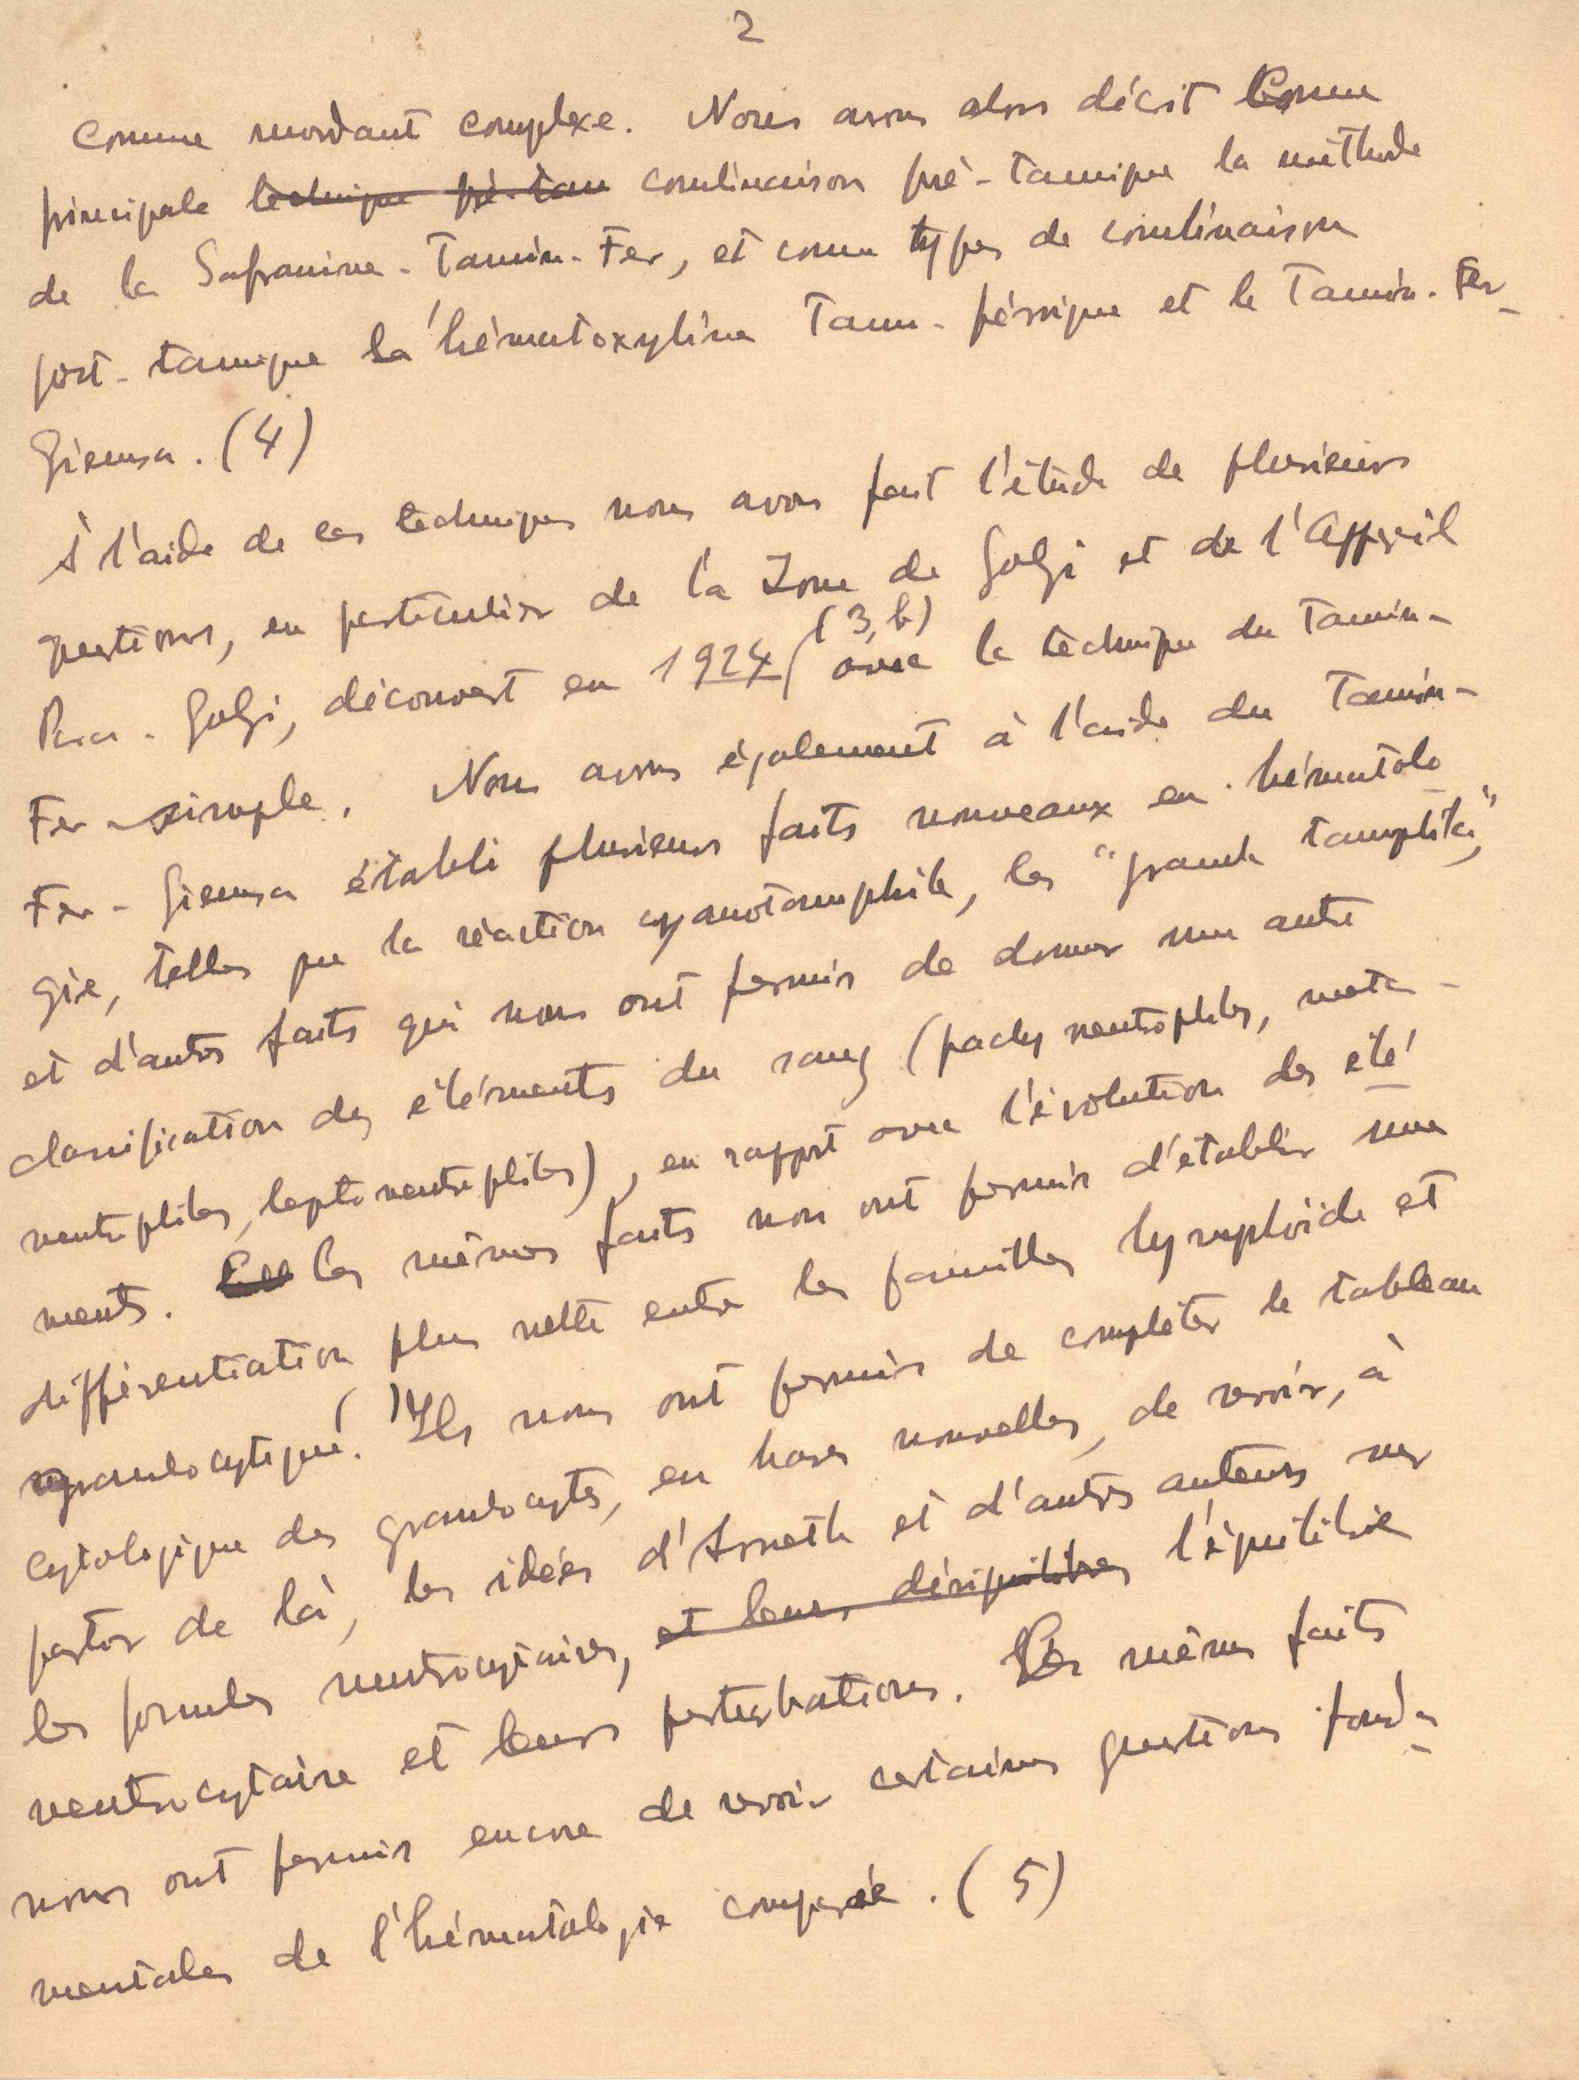 2
comme mordant complexe. Nous avons alors décrit comme
principale technique pré-tan combinaison pré-tannique la méthode
de la Safranine-Tannin-Fer, et comme types de combinaison
post-tannique la l'hématoxyline Tann-férrique et le Tannin-Fer-
Giemsa. (4)
À l'aide de ces techniques nous avons fait l'étude de plusieurs
questions, en particulier de la Zone de Golgi et de l'Appareil
Para-Golgi, découvert en 1924 (3,b) avec la technique du Tannin-
Fer simple. Nous avons également à l'aide du Tannin-
Fer-Giemsa établi plusieurs faits nouveaux en hématolo-
gie, telles que la réaction cyanotannophile, les "granula tannophiles",
et d'autres faits qui nous ont permis de donner une autre
classification des éléments du sang (pachyneutrophiles, meta-
neutrophiles, leptoneutrophiles), en rapport avec l'évolution des élé-
ments. Les mêmes faits nous ont permis d'établir une
différentiation plus nette entre les familles lymphoïde et
granulocytique. ( ) Ils nous ont permis de compléter le tableau
cytologique des granulocytes, en bases nouvelles, de revoir, à
partir de là, les idées d'Arneth et d'autres auteurs sur
les formules neutrocytaires, et leurs déséquilibres l'équilibre
neutrocytaire et leurs perturbations. Les mêmes faits
nous ont permis encore de revoir certaines questions fonda-
mentales de l'hématologie comparée. (5)